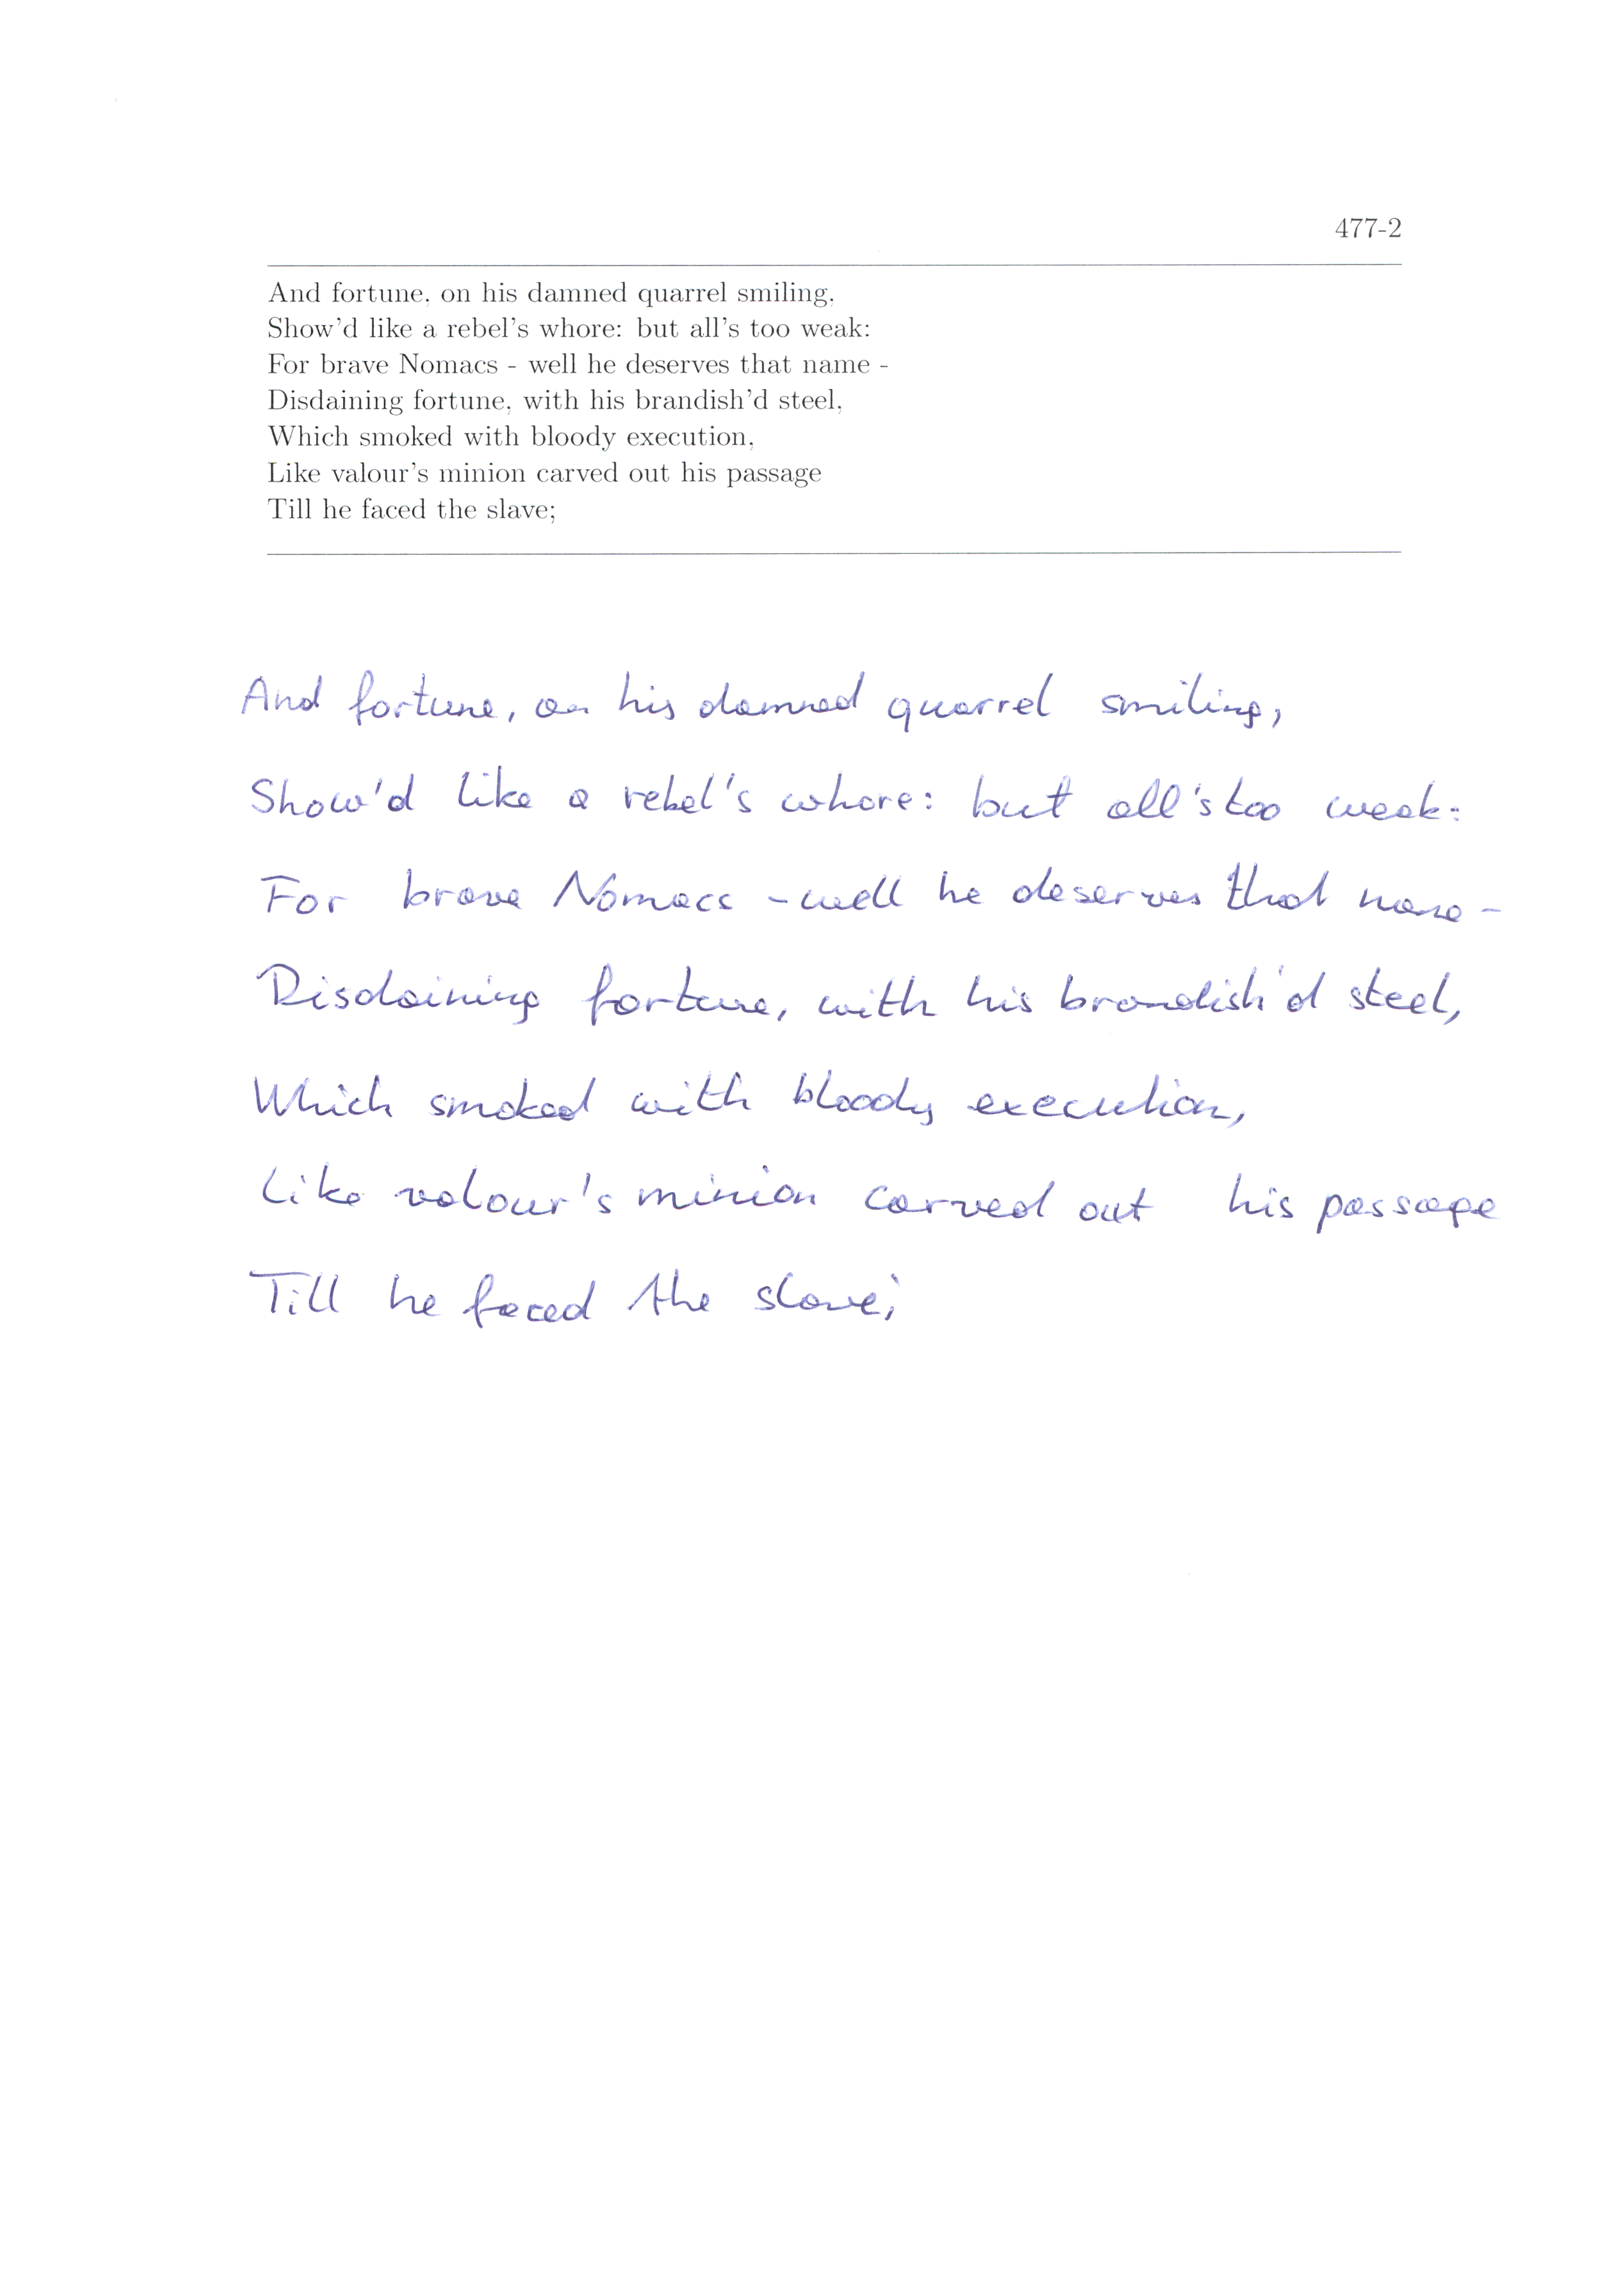 477-2
And fortune, on his damned quarrel smiling,
Show'd like a rebel's whore: but all's too weak:
For brave Nomacs - well he deserves that name -
Disdaining fortune, with his brandish'd steel,
Which smoked with bloody execution,
Like valour's minion carved out his passage
Till he faced the slave;
And fortune, on his damned quarrel smiling,
Show'd like a rebel's whore: but all's too weak:
For brave Nomacs - well he deserves that name -
Disdaining fortune, with his brandish'd steel,
Which smoked with bloody execution,
Like valour's minion carved out his passage
Till he faced the slave;